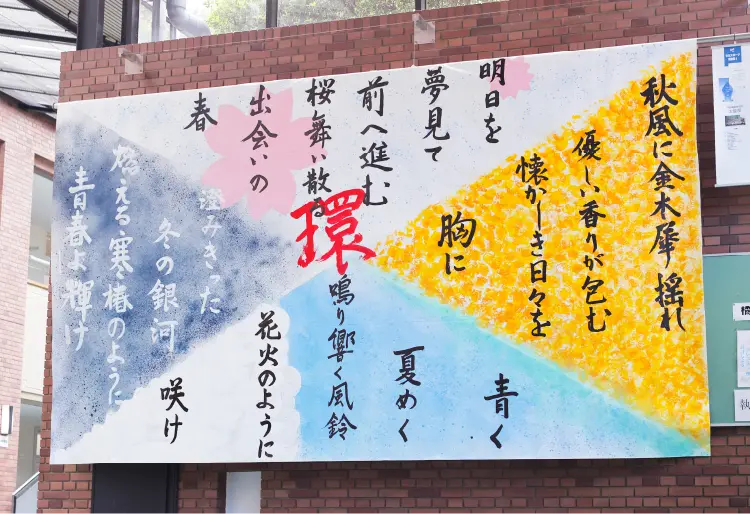 秋風に金木犀揺れ
優しい香りが包む
懐かしき日々を
胸に
明日を
夢見て
前へ進む
桜舞い散る
出会いの
春
環
青く
夏めく
鳴り響く風鈴
花火のように
咲け
澄みきった
冬の銀河
燃える寒椿のように
青春よ輝け